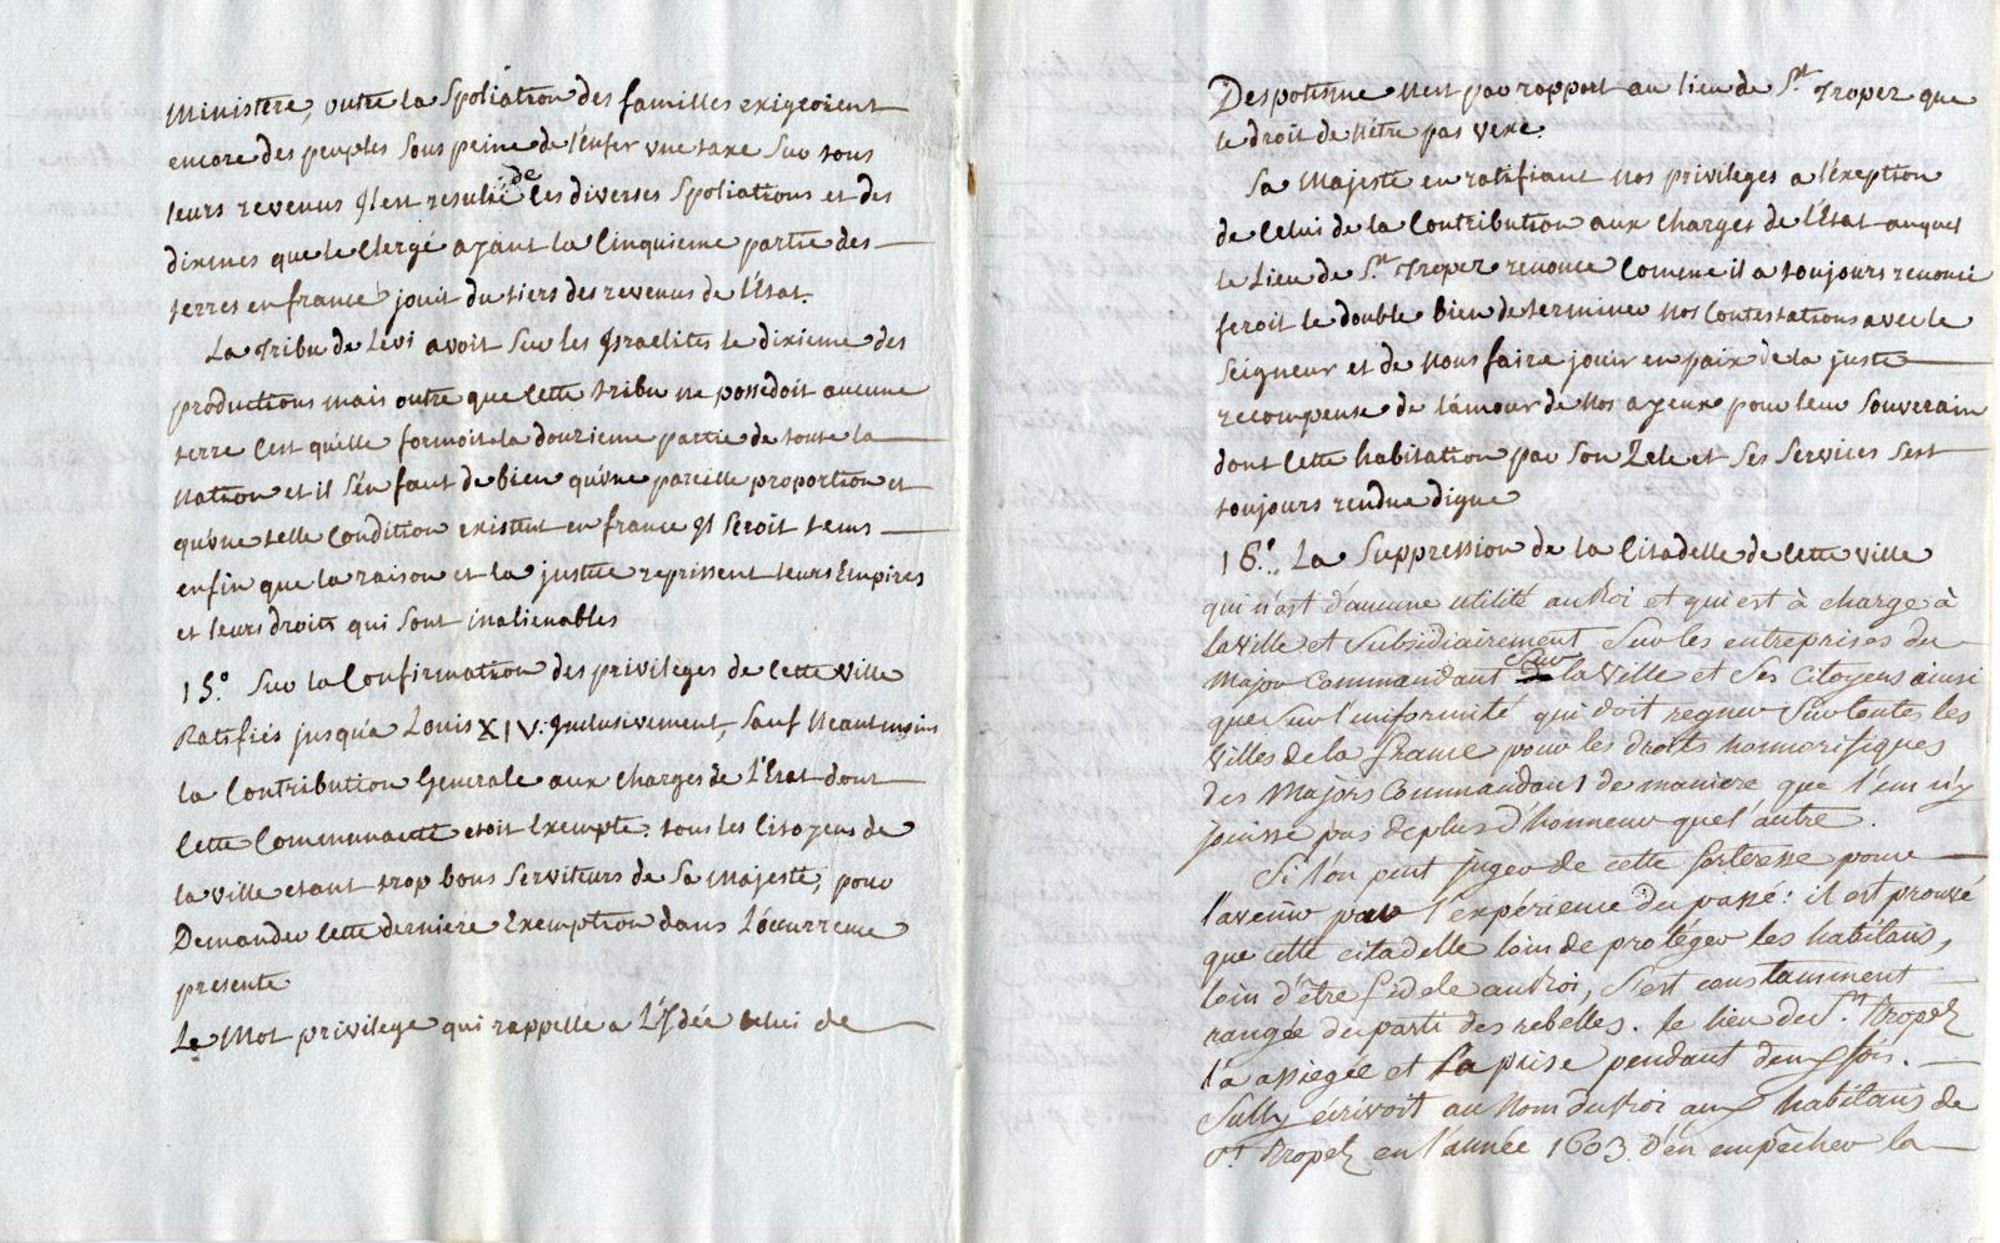 Ministère, outre la Spoliation des familles exigeoient
encore des peuples sous peine de l'enfer vne taxe Sur tous
leurs revenus Il est resulté de ces diverses Spoliations et des
dixmes que le Clergé ayant la Cinquieme partie des
terres en france jouit du tiers des revenus de l'État.
La Tribu de Levi avoit Sur les Israelites le dixieme des
productions mais outre que cette tribu ne possedoit aucune
terre C'est qu'elle formoit la douzieme partie de toute la
Nation et il s'en faut de bien qu'vne pareille proportion et
qu'vne telle Condition existent en france Il Seroit tems
enfin que la raison et la justice reprissent leurs Empires
et leurs droits qui Sont inalienables
15.° Sur la Confirmation des privileges de Cette Ville
Ratifiés jusqu'a Louis XIV. Inclusivement, Sauf Neantmoins
la Contribution Generale aux charges de L'Etat dont
Cette Communauté etoit Exempte. tous les Citoyens de
la ville etant trop bons Serviteurs de Sa Majesté, pour
Demander Cette derniere Exemption dans L'ocurrence
presente
Le Mot privilege qui rappelle a L'Idée celui de
Despotisme n'est par rapport au lieu de S.t Tropez que
le droit de N'être pas vexé.
Sa Majesté en ratifiant Nos privileges a l'exeption
de Celui de la Contribution aux charges de l'État auquel
le Lieu de S.t Tropez renonce Comme il a toujours renoncé
feroit le double bien de terminer Nos Contestations avec le
Seigneur et de Nous faire jouir en paix de la juste
recompense de l'amour de Nos ayeux pour leur Souverain
dont Cette habitation par Son Zele et Ses Services S'est
toujours rendue digne
16.° La Suppression de la Citadelle de Cette Ville
qui n'est d'aucune utilité au Roi et qui est à charge à
la Ville et Subsidiairement Sur les entreprises du
Major Commandant Sur la Ville et Ses Citoyens ainsi
que Sur l'uniformité qui doit regner Sur toutes les
Villes de la france pour les droits honnorifiques
des Majors Commandant de maniere que l'un n'y
jouisse pas de plus d'honneur que l'autre.
Si l'on peut juger de cette forteresse pour
l'avenir par l'expérience du passé: il est prouvé
que cette citadelle loin de protéger les habitans,
loin d'être fidele au Roi, S'est constamment
rangée du parti des rebelles. le lieu de S.t Tropez
l'a assiegée et la prise pendant deux fois.
Sully écrivoit au Nom du Roi aux habitans de
S.t Tropez en l'année 1603. d'en empêcher la